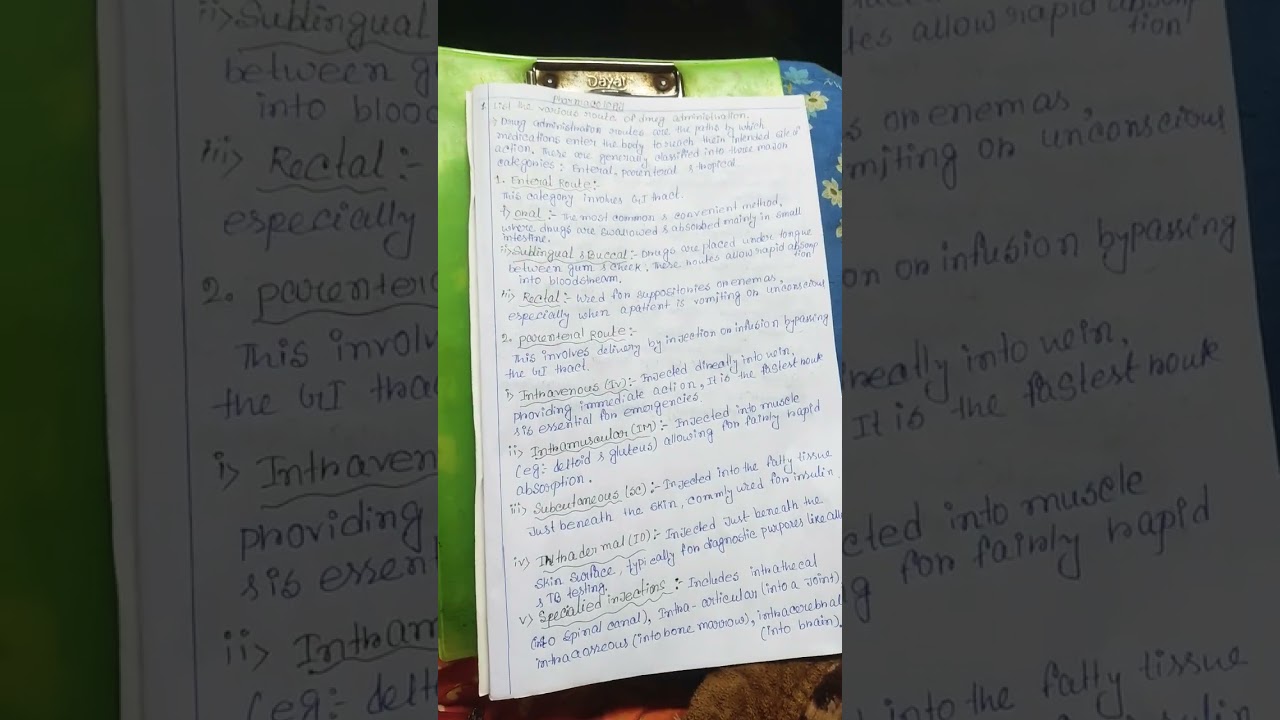 Dayal
Pharmacology
1. List the various route of drug administration.
→ Drug administration routes are the paths by which
medications enter the body to reach their intended site of
action. These are generally classified into three major
categories: Enteral, parenteral & tropical.
1. Enteral Route:-
This category involves GI tract.
i) oral :- The most common & convenient method,
where drugs are swallowed & absorbed mainly in small
intestine.
ii) Sublingual & Buccal:- Drugs are placed under tongue
between gum & cheek. These routes allow rapid absorp
tion
into bloodstream.
iii) Rectal:- Used for suppositories or enemas,
especially when a patient is vomiting or unconscious
2. parenteral Route:-
This involves delivery by injection or infusion bypassing
the GI tract.
i) Intravenous (Iv):- Injected direally into vein,
providing immediate action, It is the fastest route
& is essential for emergencies.
ii) Intramuscular (IM):- Injected into muscle
(eg:- deltoid & gluteus) allowing for fairly rapid
absorption.
iii) Subcutaneous (SC):- Injected into the fatty tissue
Just beneath the skin, commly used for insulin
iv) Intradermal (ID):- Injected Just beneath the
skin surface, typically for diagnostic purposes like all
& TB testing.
v) Specialied injections :- Includes intrathecal
(into spinal canal), Intra-articular (into a joint),
intraosseous (into bone marrow), intracerebral
(into brain).